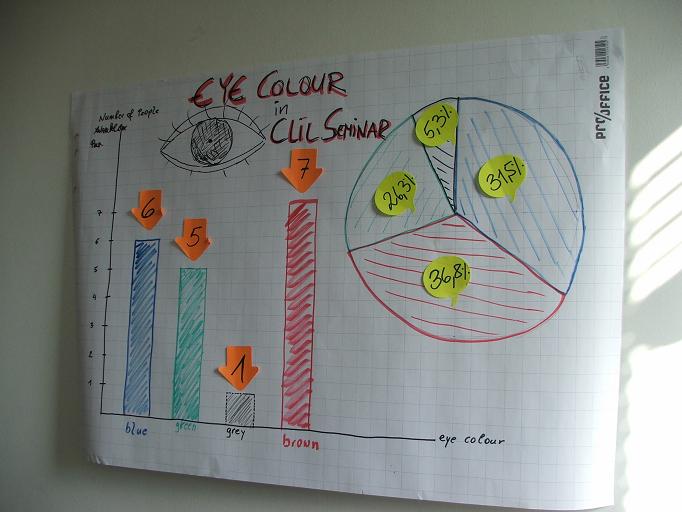 EYE COLOUR
in
CLIL SEMINAR
PRO/OFFICE
Number of People
7
6
5
4
3
2
1
6
5
1
7
blue
green
grey
brown
eye colour
5,3%
31,5%
26,3%
36,8%